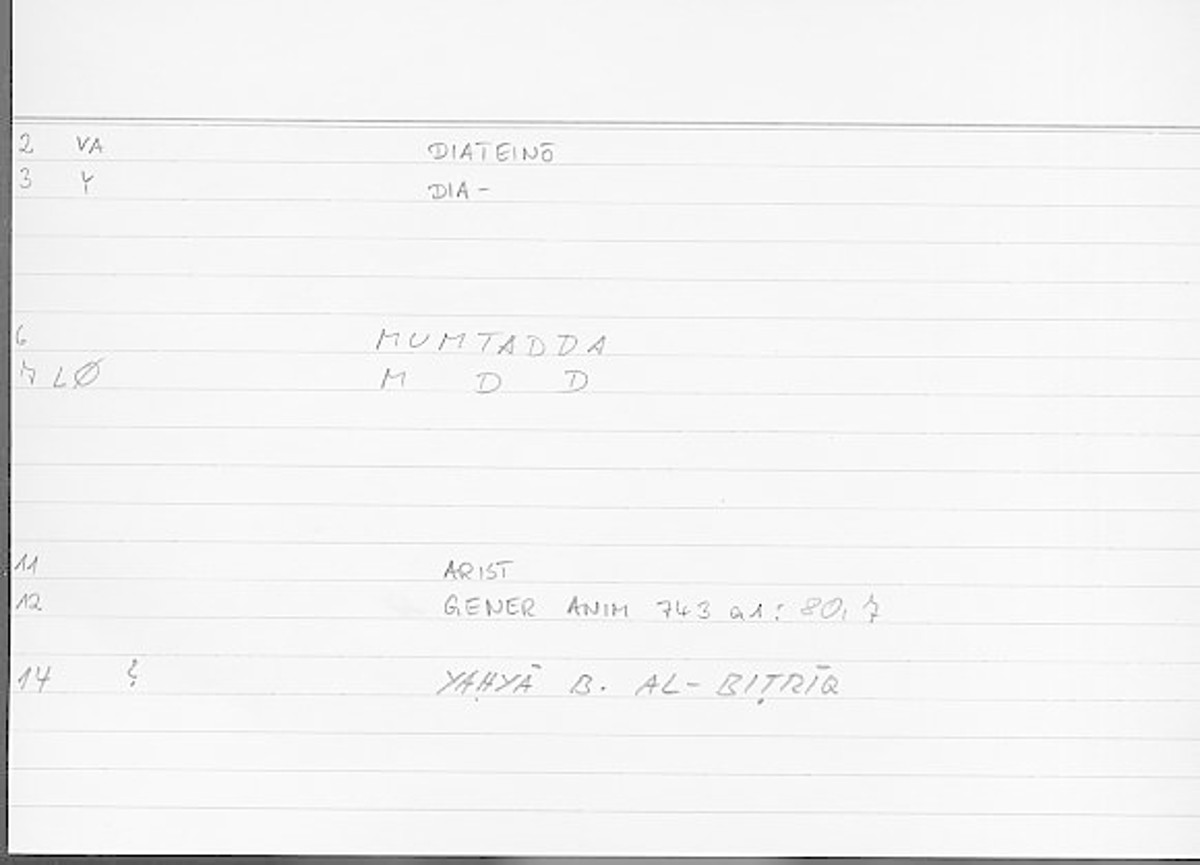 2 VA DIATEINŌ
3 Y DIA-
6 MUMTADDA
7 LØ M D D
11 ARIST
12 GENER ANIM 743 a1: 80,7
14 ? YAḤYĀ B. AL-BIṬRĪQ